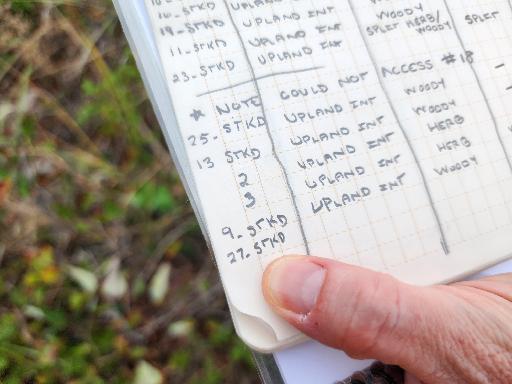 16. STKD UPLAND INT WOODY
19. STKD UPLAND INT SPLIT HERB/WOODY SPLIT
11. STKD UPLAND INT
23. STKD UPLAND INT
* NOTE COULD NOT ACCESS #18
25. STKD UPLAND INT WOODY
13 STKD UPLAND INT WOODY
2 UPLAND INT HERB
3 UPLAND INT HERB
9. STKD UPLAND INT WOODY
27. STKD